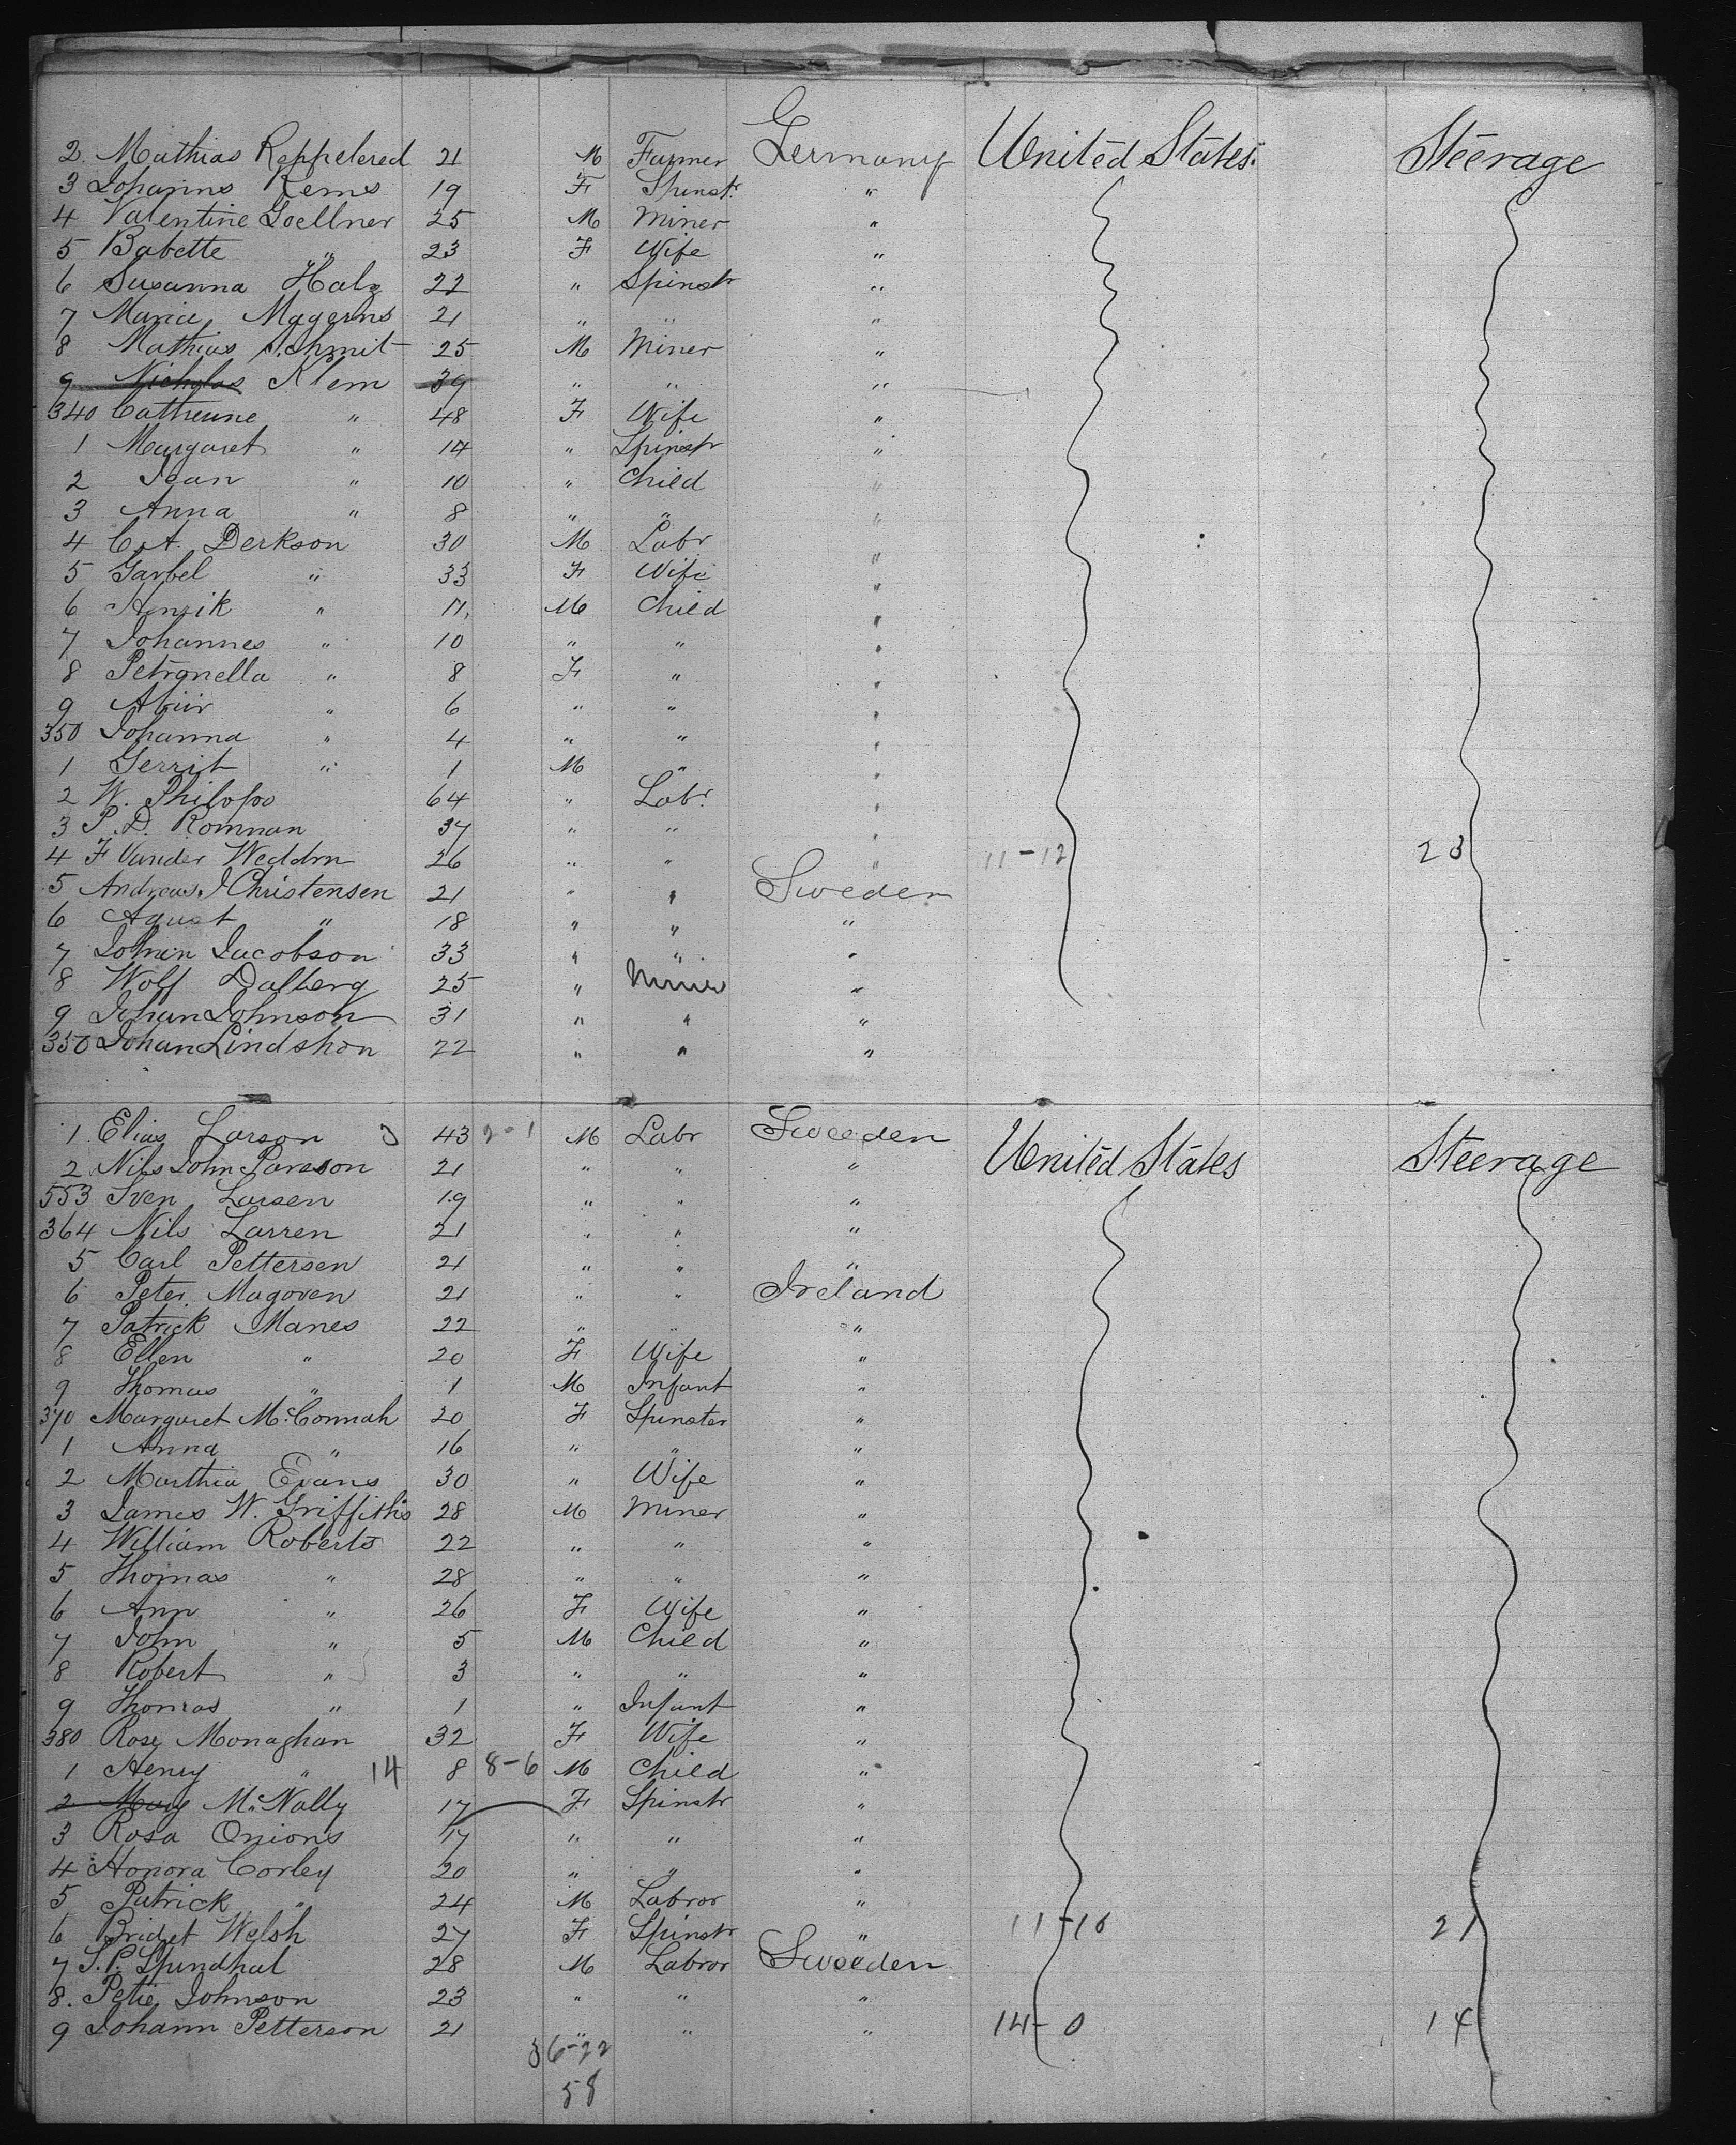 2. Mathias Reppelered 21 M Farmer Germany United States. Steerage
3 Johanns Rems 19 F Spinst. "
4 Valentine Goellner 25 M Miner "
5 Babette " 23 F Wife "
6 Susanna Halz 22 " Spinstr "
7 Maria Magerns 21 " " "
8 Mathias Schmit 25 M Miner "
9 Nicholas Klem 39 " " "
340 Catherine " 48 F Wife "
1 Margaret " 14 " Spinstr "
2 Jean " 10 " Child "
3 Anna " 8 " " "
4 C. A. Derkson 30 M Labr "
5 Garbel " 33 F Wife "
6 Henrik " 11 M Child "
7 Johannes " 10 " " "
8 Petronella " 8 F " "
9 " 6 " " "
350 Johanna " 4 " " "
1 Gerrit " 1 M " "
2 W. Philopo 64 " Labr. "
3 P. D. Romnan 37 " " "
4 F Vander Weddrn 26 " " " 11-12 23
5 Andreas J Christensen 21 " " Sweden
6 Agust " 18 " " "
7 Johan Jacobson 33 " " "
8 Wolf Dalberg 25 " Miner "
9 Johan Johnson 31 " " "
350 Johan Lindshon 22 " " "
1 Elias Larson 3 43 2-1 M Labr Sweeden United States Steerage
2 Nils John Parsson 21 " " "
553 Sven Larsen 19 " " "
364 Nils Larren 21 " " "
5 Carl Pettersen 21 " " "
6 Peter Magoven 21 " " Ireland
7 Patrick Manes 22 " " "
8 Ellen " 20 F Wife "
9 Thomas " 1 M Infant "
370 Margaret McConnah 20 F Spinster "
1 Anna " 16 " " "
2 Marthia Evans 30 " Wife "
3 James W. Griffiths 28 M Miner "
4 William Roberts 22 " " "
5 Thomas " 28 " " "
6 Ann " 26 F Wife "
7 John " 5 M Child "
8 Robert " 3 " " "
9 Thomas " 1 " Infant "
380 Rosy Monaghan 32 F Wife "
1 Henry " 14 8 8-6 M Child "
2 Mary McNally 17 F Spinstr "
3 Rosa Onions 17 " " "
4 Honora Corley 20 " " "
5 Patrick " 24 M Labror "
6 Bridget Welsh 27 F Spinstr " 11-10 21
7 S. P. Spundhal 28 M Labror Sweeden
8. Petie Johnson 23 " " "
9 Johann Petterson 21 " " " 14-0 14
36-22
58